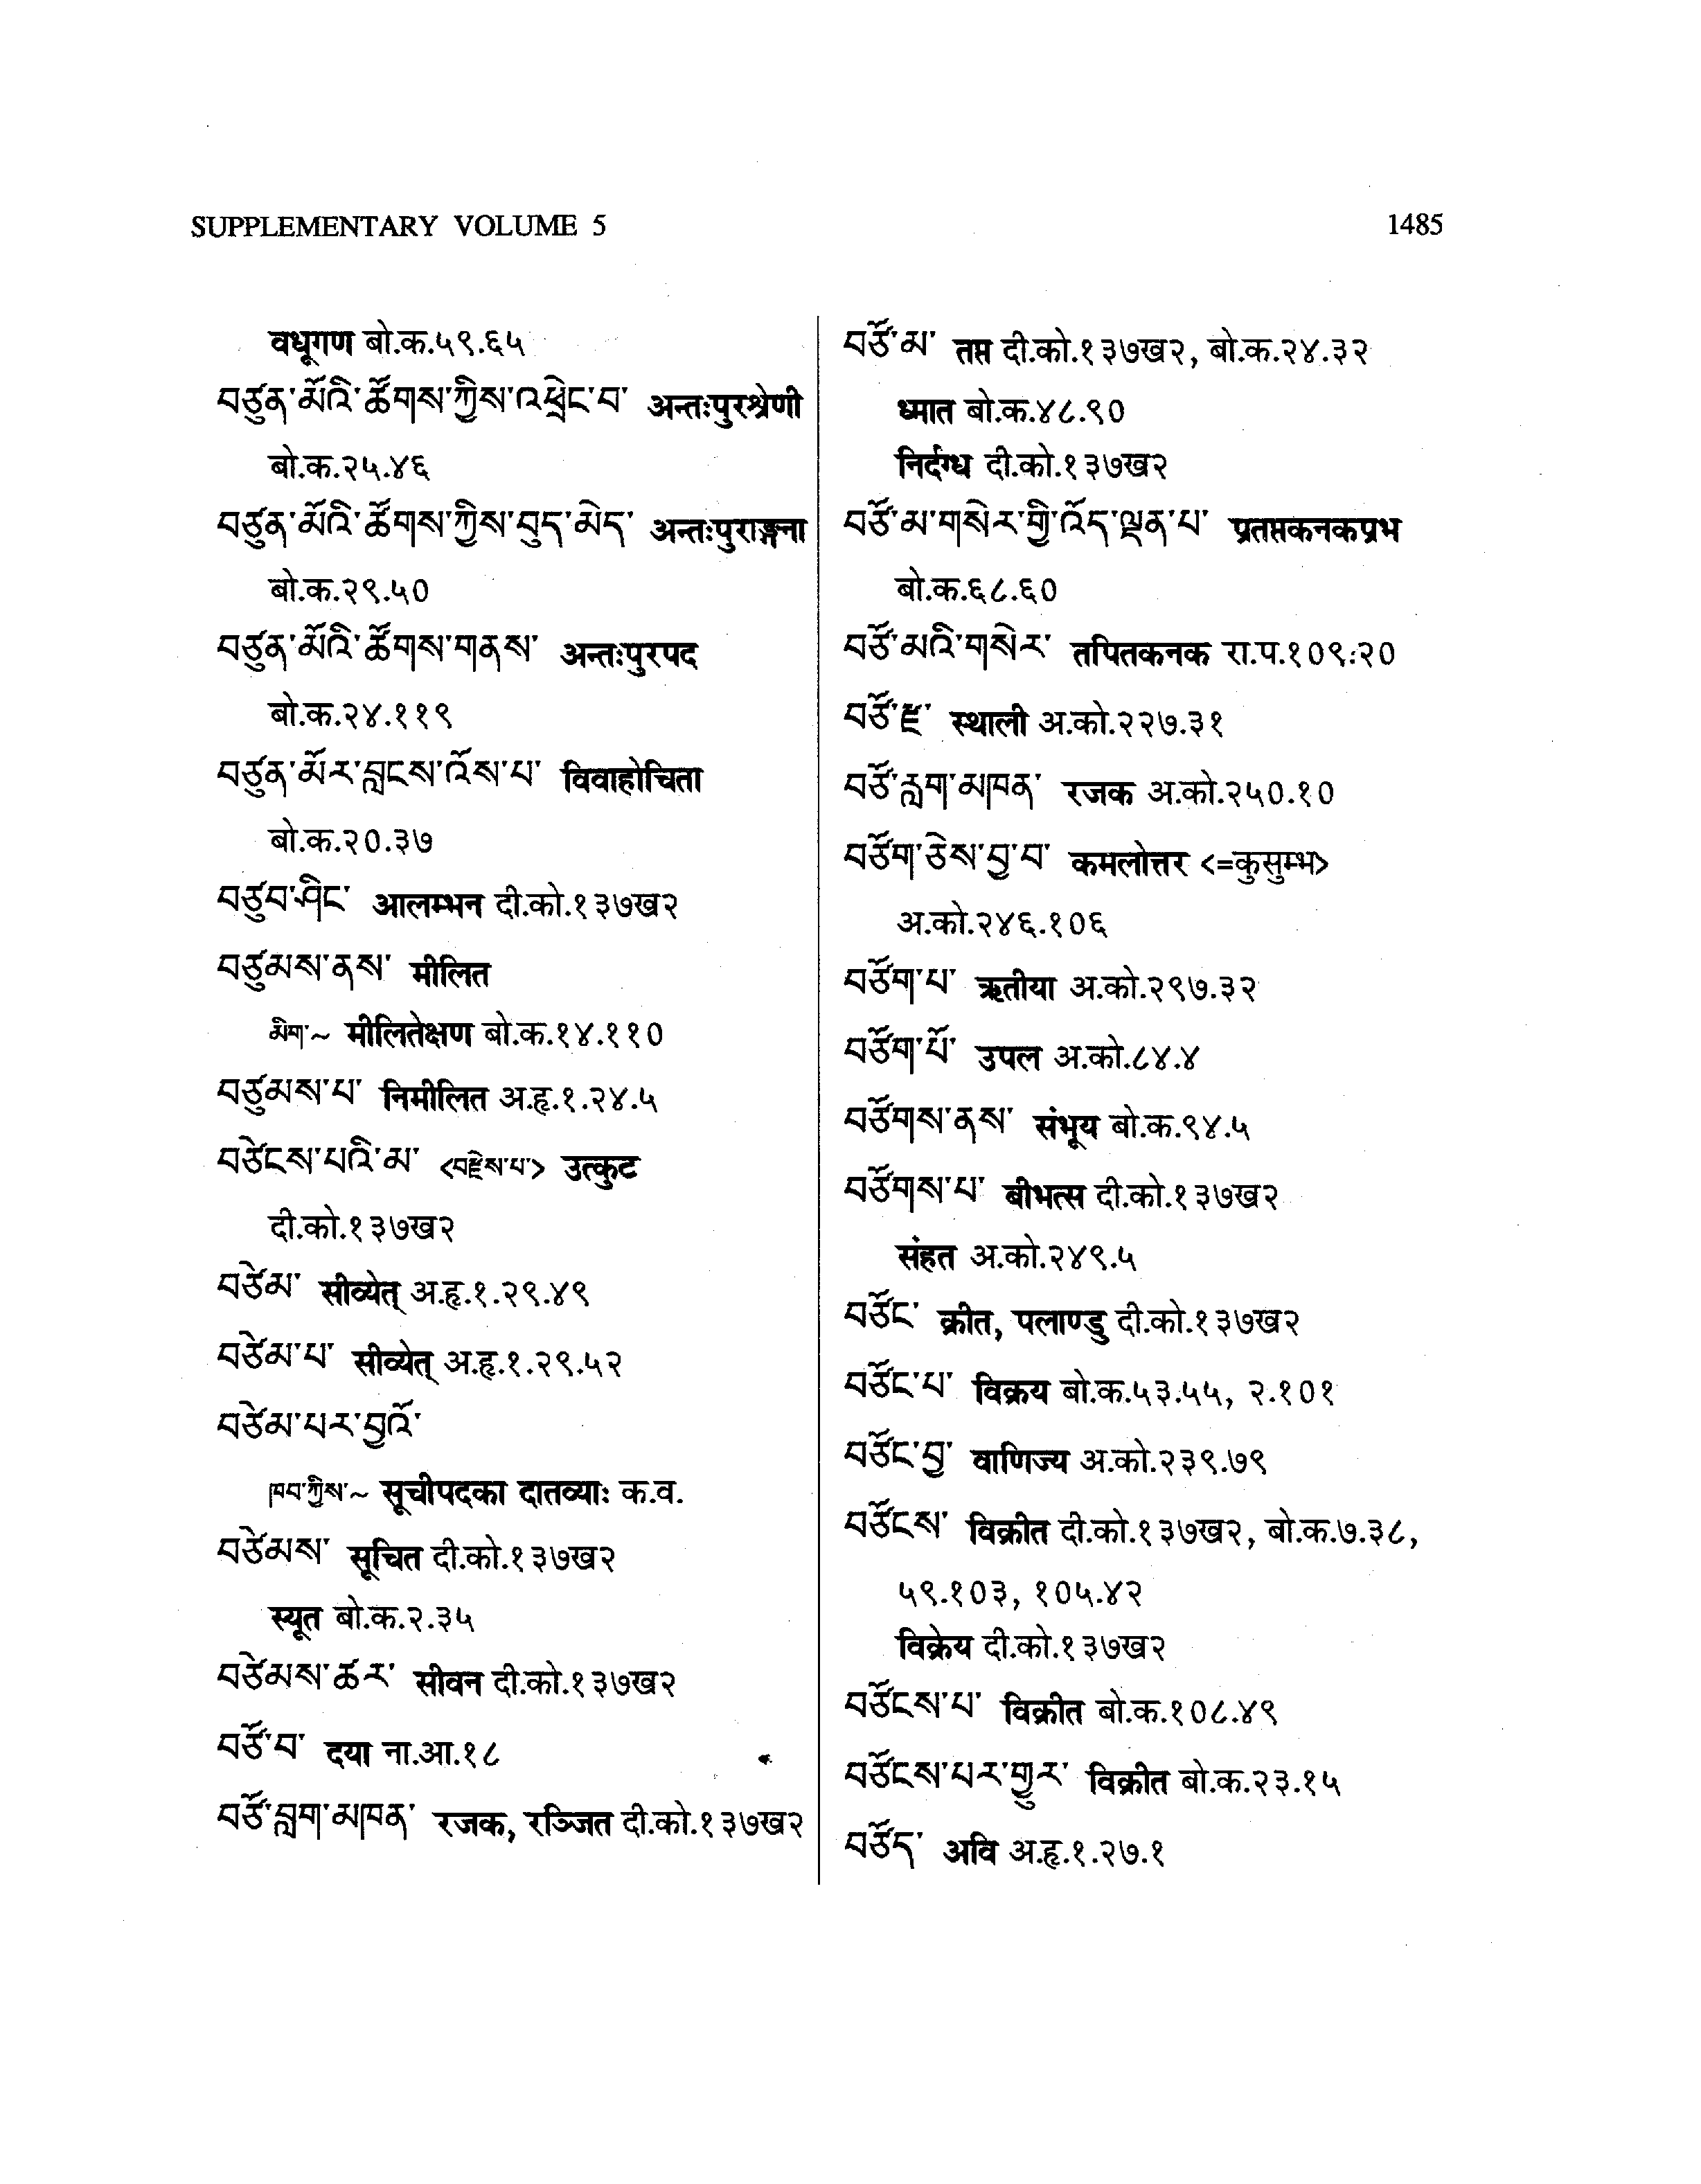 SUPPLEMENTARY VOLUME 5
1485
वधूगण बो.क.५९.६५
བཙུན་མོའི་ཚོགས་ཀྱིས་འཕྲེང་བ་ अन्तःपुरश्रेणी
बो.क.२५.४६
བཙུན་མོའི་ཚོགས་ཀྱིས་བུད་མེད་ अन्तःपुराङ्गना
बो.क.२९.५०
བཙུན་མོའི་ཚོགས་གནས་ अन्तःपुरपद
बो.क.२४.११९
བཙུན་མོར་བླངས་འོས་པ་ विवाहोचिता
बो.क.२०.३७
བཙུབ་ཤིང་ आलम्भन दी.को.१३७ख२
བཙུམས་ནས་ मीलित
མིག་~ मीलितेक्षण बो.क.१४.११०
བཙུམས་པ་ निमीलित अ.हृ.१.२४.५
བཙེངས་པའི་མ་ <བརྫེས་པ་> उत्कुट
दी.को.१३७ख२
བཙེམ་ सीव्येत् अ.हृ.१.२९.४९
བཙེམ་པ་ सीव्येत् अ.हृ.१.२९.५२
བཙེམ་པར་བྱའོ་
ཁབ་ཀྱིས་~ सूचीपदका दातव्याः क.व.
བཙེམས་ सूचित दी.को.१३७ख२
स्यूत बो.क.२.३५
བཙེམས་ཚར་ सीवन दी.को.१३७ख२
བཙོ་བ་ दया ना.आ.१८
བཙོ་བླག་མཁན་ रजक, रञ्जित दी.को.१३७ख२
བཙོ་མ་ तप्त दी.को.१३७ख२, बो.क.२४.३२
ध्मात बो.क.४८.९०
निर्दग्ध दी.को.१३७ख२
བཙོ་མ་གསེར་གྱི་འོད་ལྡན་པ་ प्रतप्तकनकप्रभ
बो.क.६८.६०
བཙོ་མའི་གསེར་ तपितकनक रा.प.१०९:२०
བཙོ་རྫ་ स्थाली अ.को.२२७.३१
བཙོ་རླག་མཁན་ रजक अ.को.२५०.१०
བཙོག་ཅེས་བྱ་བ་ कमलोत्तर <=कुसुम्भ>
अ.को.२४६.१०६
བཙོག་པ་ ऋतीया अ.को.२९७.३२
བཙོག་པོ་ उपल अ.को.८४.४
བཙོགས་ནས་ संभूय बो.क.९४.५
བཙོགས་པ་ बीभत्स दी.को.१३७ख२
संहत अ.को.२४९.५
བཙོང་ क्रीत, पलाण्डु दी.को.१३७ख२
བཙོང་པ་ विक्रय बो.क.५३.५५, २.१०१
བཙོང་བྱ་ वाणिज्य अ.को.२३९.७९
བཙོངས་ विक्रीत दी.को.१३७ख२, बो.क.७.३८,
५९.१०३, १०५.४२
विक्रेय दी.को.१३७ख२
བཙོངས་པ་ विक्रीत बो.क.१०८.४९
བཙོངས་པར་གྱུར་ विक्रीत बो.क.२३.१५
བཙོད་ अवि अ.हृ.१.२७.१